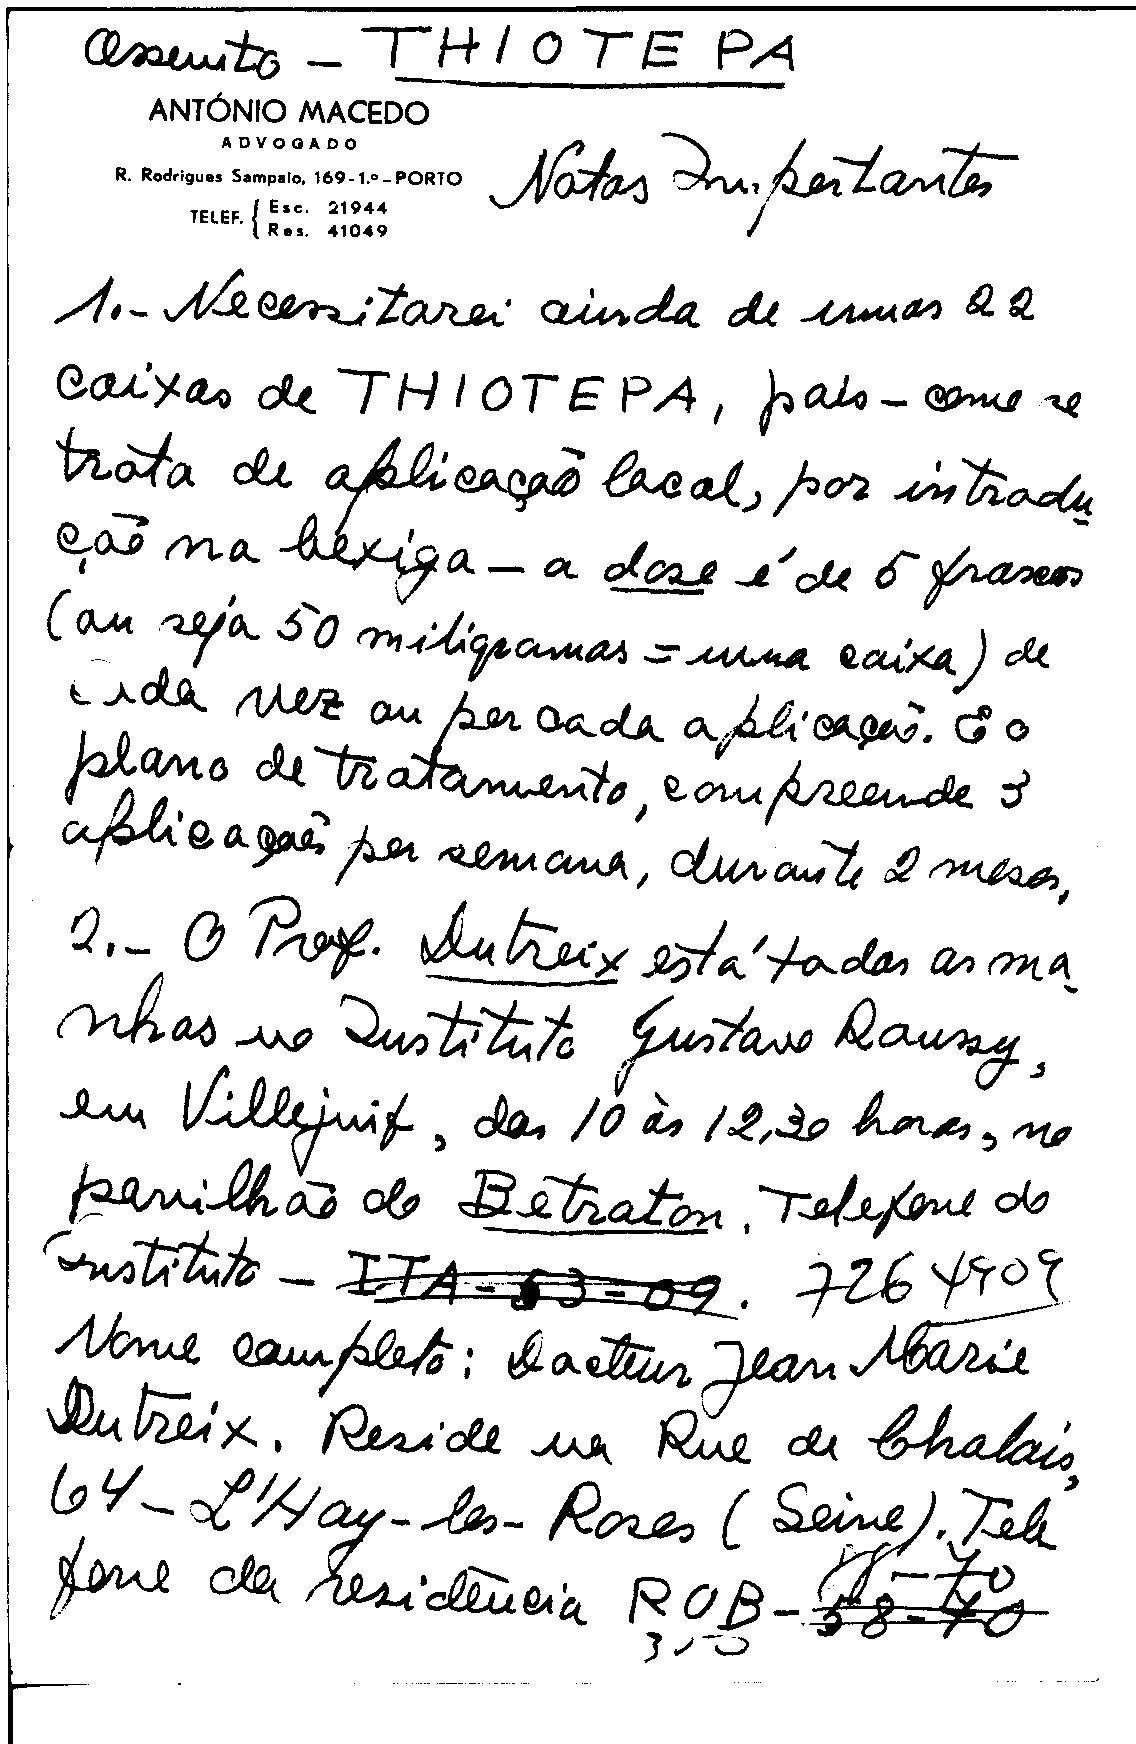 Assunto - THIOTEPA
ANTÓNIO MACEDO
ADVOGADO
R. Rodrigues Sampaio, 169-1.º-PORTO
TELEF. { Esc. 21944
Res. 41049
Notas Importantes
1.- Necessitarei ainda de umas 22
caixas de THIOTEPA, pois - como se
trata de aplicação local, por introdu-
ção na bexiga - a dose é de 5 frascos
(ou seja 50 miligramas = uma caixa) de
cada vez ou por cada aplicação. E o
plano de tratamento, compreende 3
aplicações por semana, durante 2 meses.
2.- O Prof. Dutreix está todas as ma-
nhas no Instituto Gustave Roussy,
em Villejuif, das 10 às 12,30 horas, no
pavilhão do Betraton. Telefone do
Instituto - ITA-53-09. 7264909
Nome completo: Docteur Jean Marie
Dutreix. Reside na Rue de Chalais,
64 - L'Hay-les-Roses (Seine). Tele
fone da residência ROB - 58-70